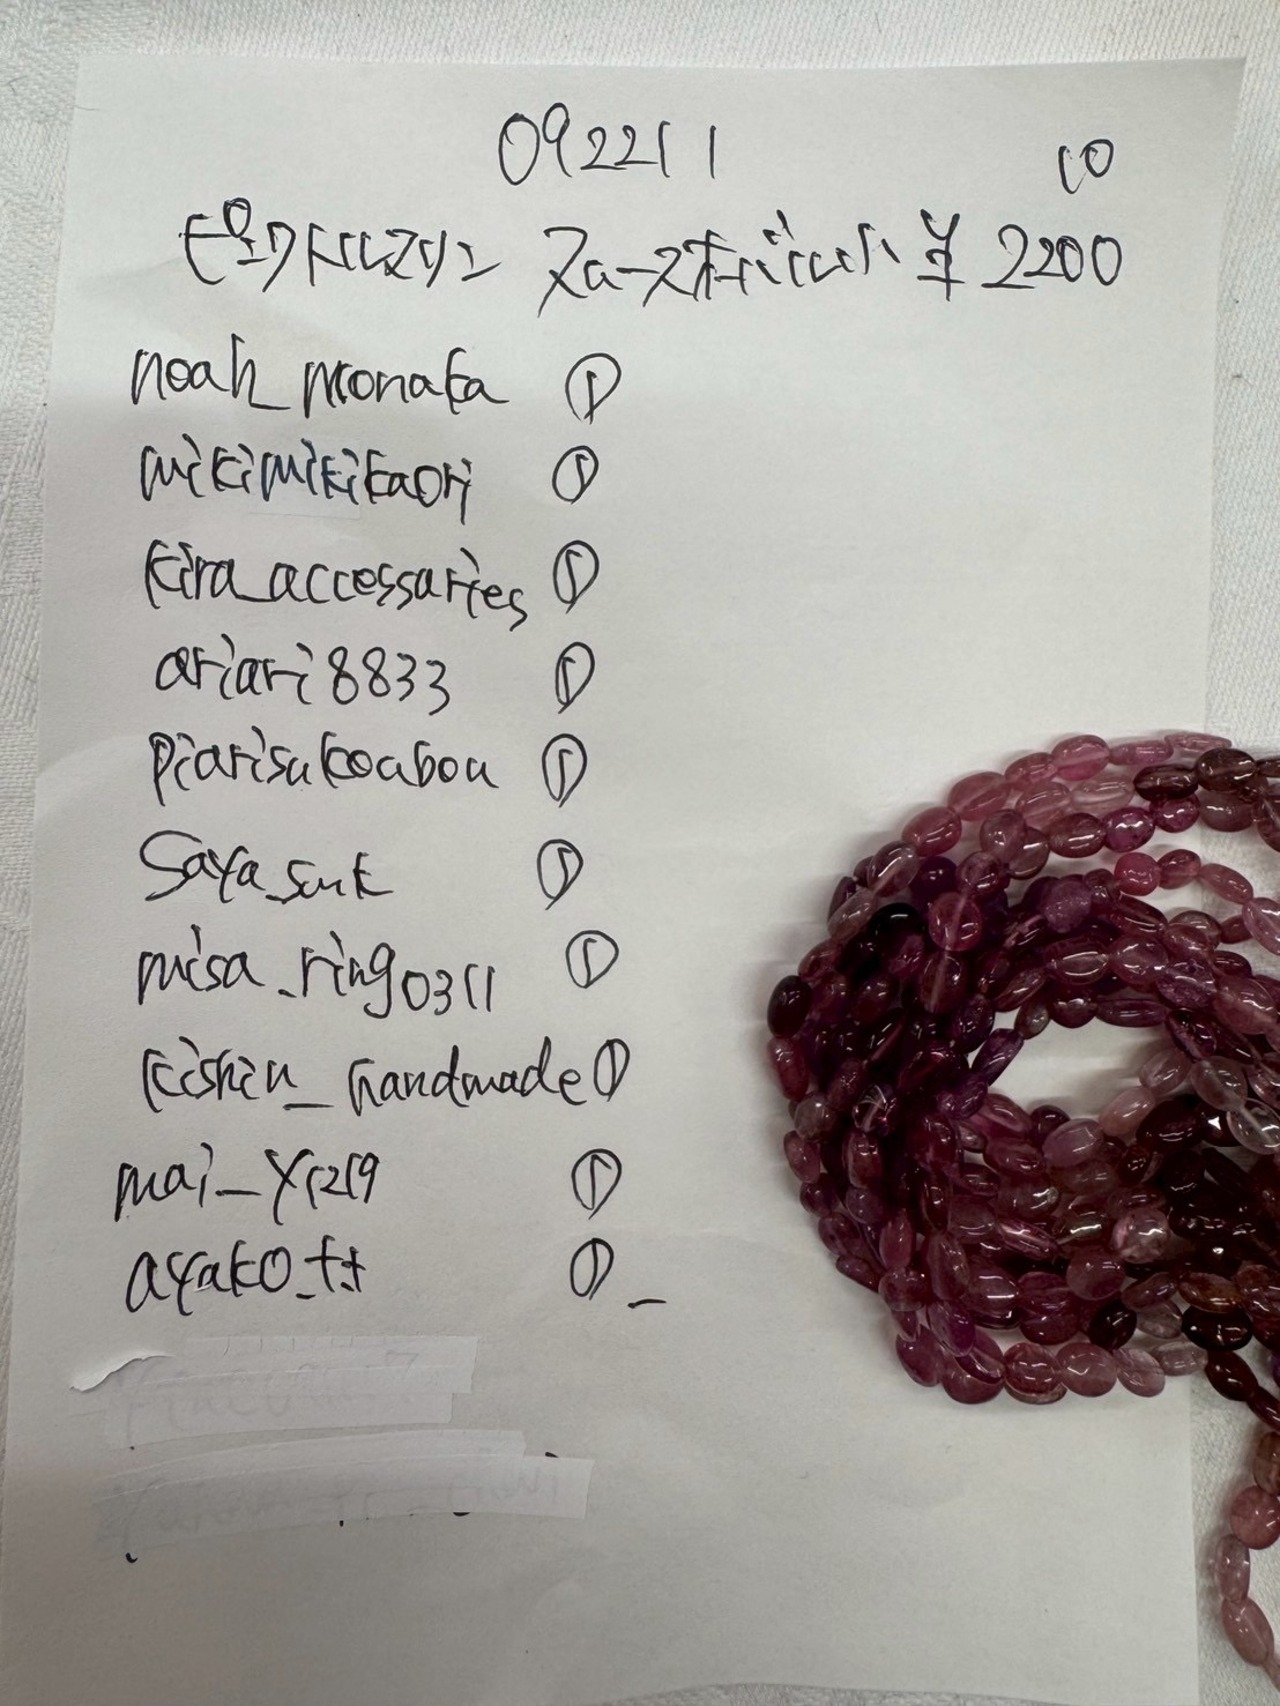 092211 10
ピンクトルマリン ¥2200
noah_monaka ①
mikimikikaori ①
kira_accessaries ①
ariari8833 ①
piarisukoubou ①
saya_sunk ①
misa_ring0311 ①
kishin_handmade ①
mai_y1219 ①
ayako_tt ①